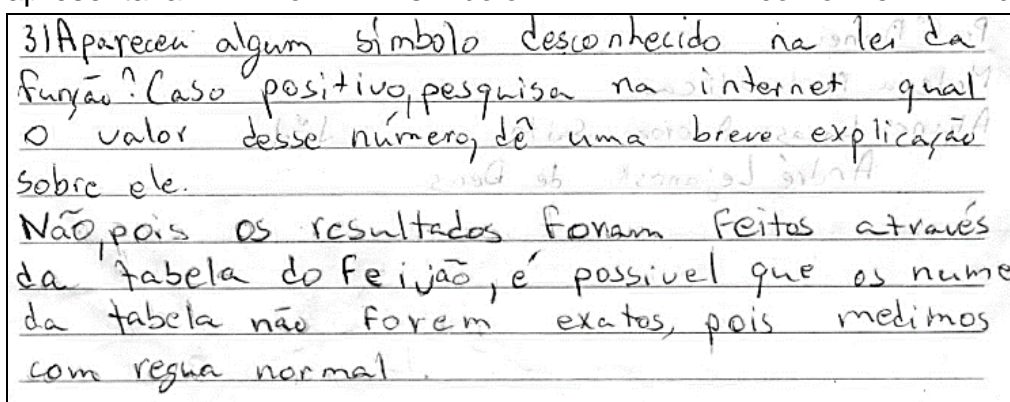 31Apareceu algum símbolo desconhecido na lei da
função? Caso positivo, pesquisa na internet qual
o valor desse número, dê uma breve explicação
sobre ele.
Não, pois os resultados foram feitos através
da tabela do feijão, é possivel que os nume
da tabela não forem exatos, pois medimos
com regua normal.